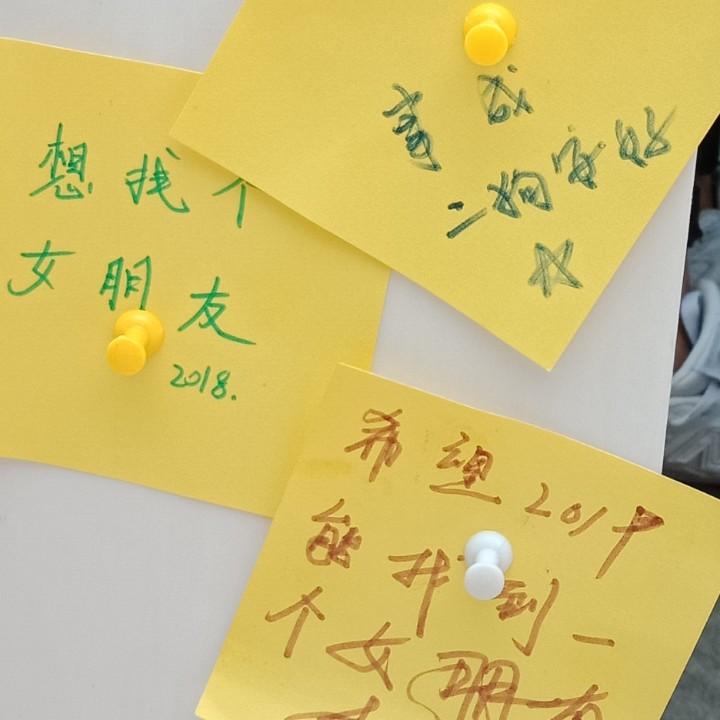 事 成
二狗家好
☆
想找个
女朋友
2018.
希望2019
能找到一
个女朋友